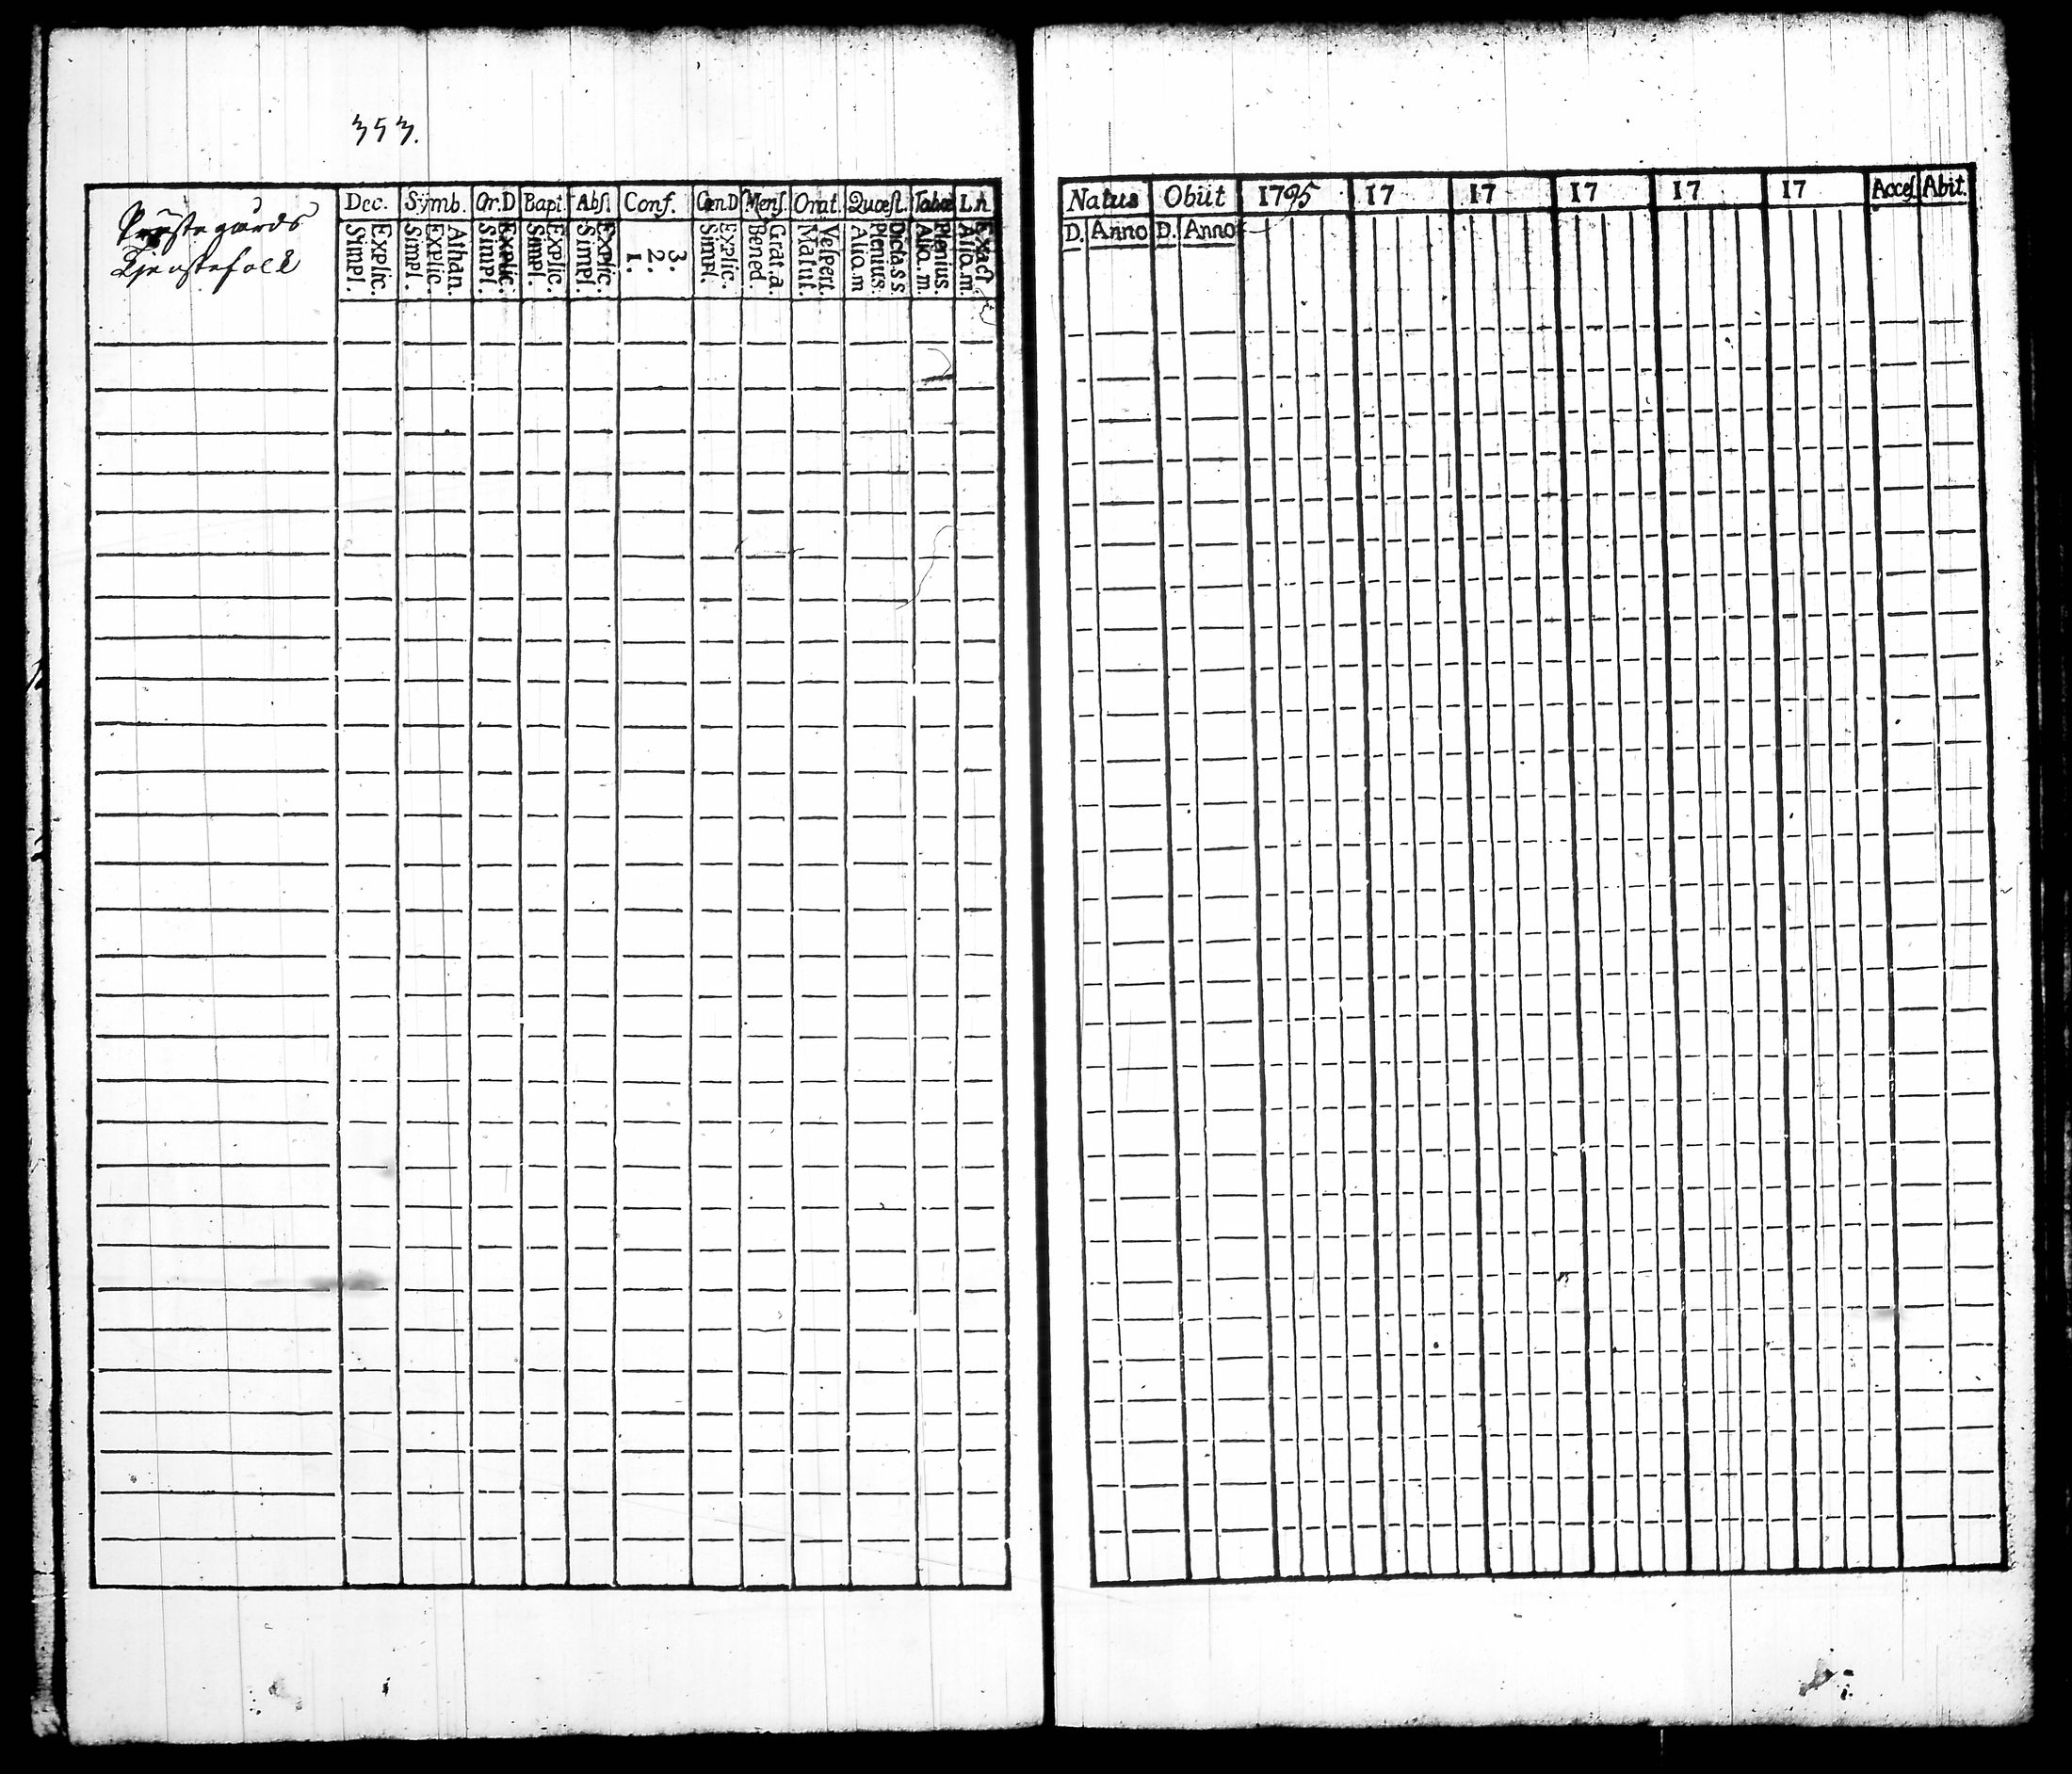 353.
Prästegårds
Tjenstefolk
Dec. Symb. Or.D Bapt. Abſ. Conf. CœnD Menſ. Orat. Quœſt. Tabœ L.h.
Explic. Simpl. Athan. Explic. Simpl. Explic. Simpl. Explic. Simpl. Explic. Simpl. 3. 2. 1. Explic. Simpl. Grat.a. Bened. Veſpert. Matut. Dicta.s s. Plenius. Alio.m Plenius. Alio.m. Exact. Alio.m.
Natus Obiit 1795 17 17 17 17 17 Acceſ. Abit.
D. Anno D. Anno